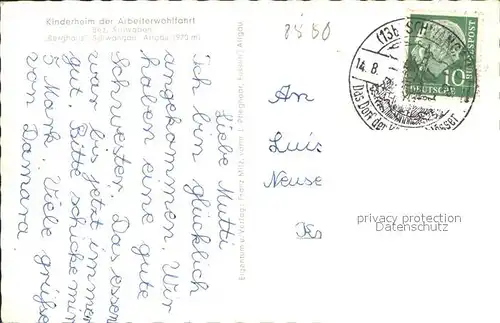 Kinderheim der Arbeiterwohlfahrt
Bez. Schwaben
"Berghaus" Schwangau Allgäu (970 m)
Liebe Mutti
ich bin glücklich
angekommen. Wir
haben eine gute
Schwester. Das essen
war bis jetzt immer
gut. Bitte schicke mir
5 Mark. Viele grüße
von Damara.
Eigentum u. Verlag: Franz Milz, vorm.
An
Luis
Neuse
(13b) SCHWANG
14.8.
Das Dorf der
DEUTSCHE
BUNDESPOST
10
privacy protection
Datenschutz